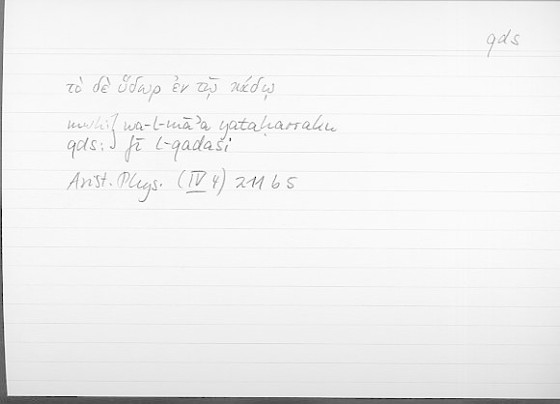 qds
τὸ δὲ ὕδωρ ἐν τῷ κάδῳ
mwh:} wa-l-māʾa yataḥarraku
qds: fī l-qadaši
Arist. Phys. (IV 4) 211 b 5